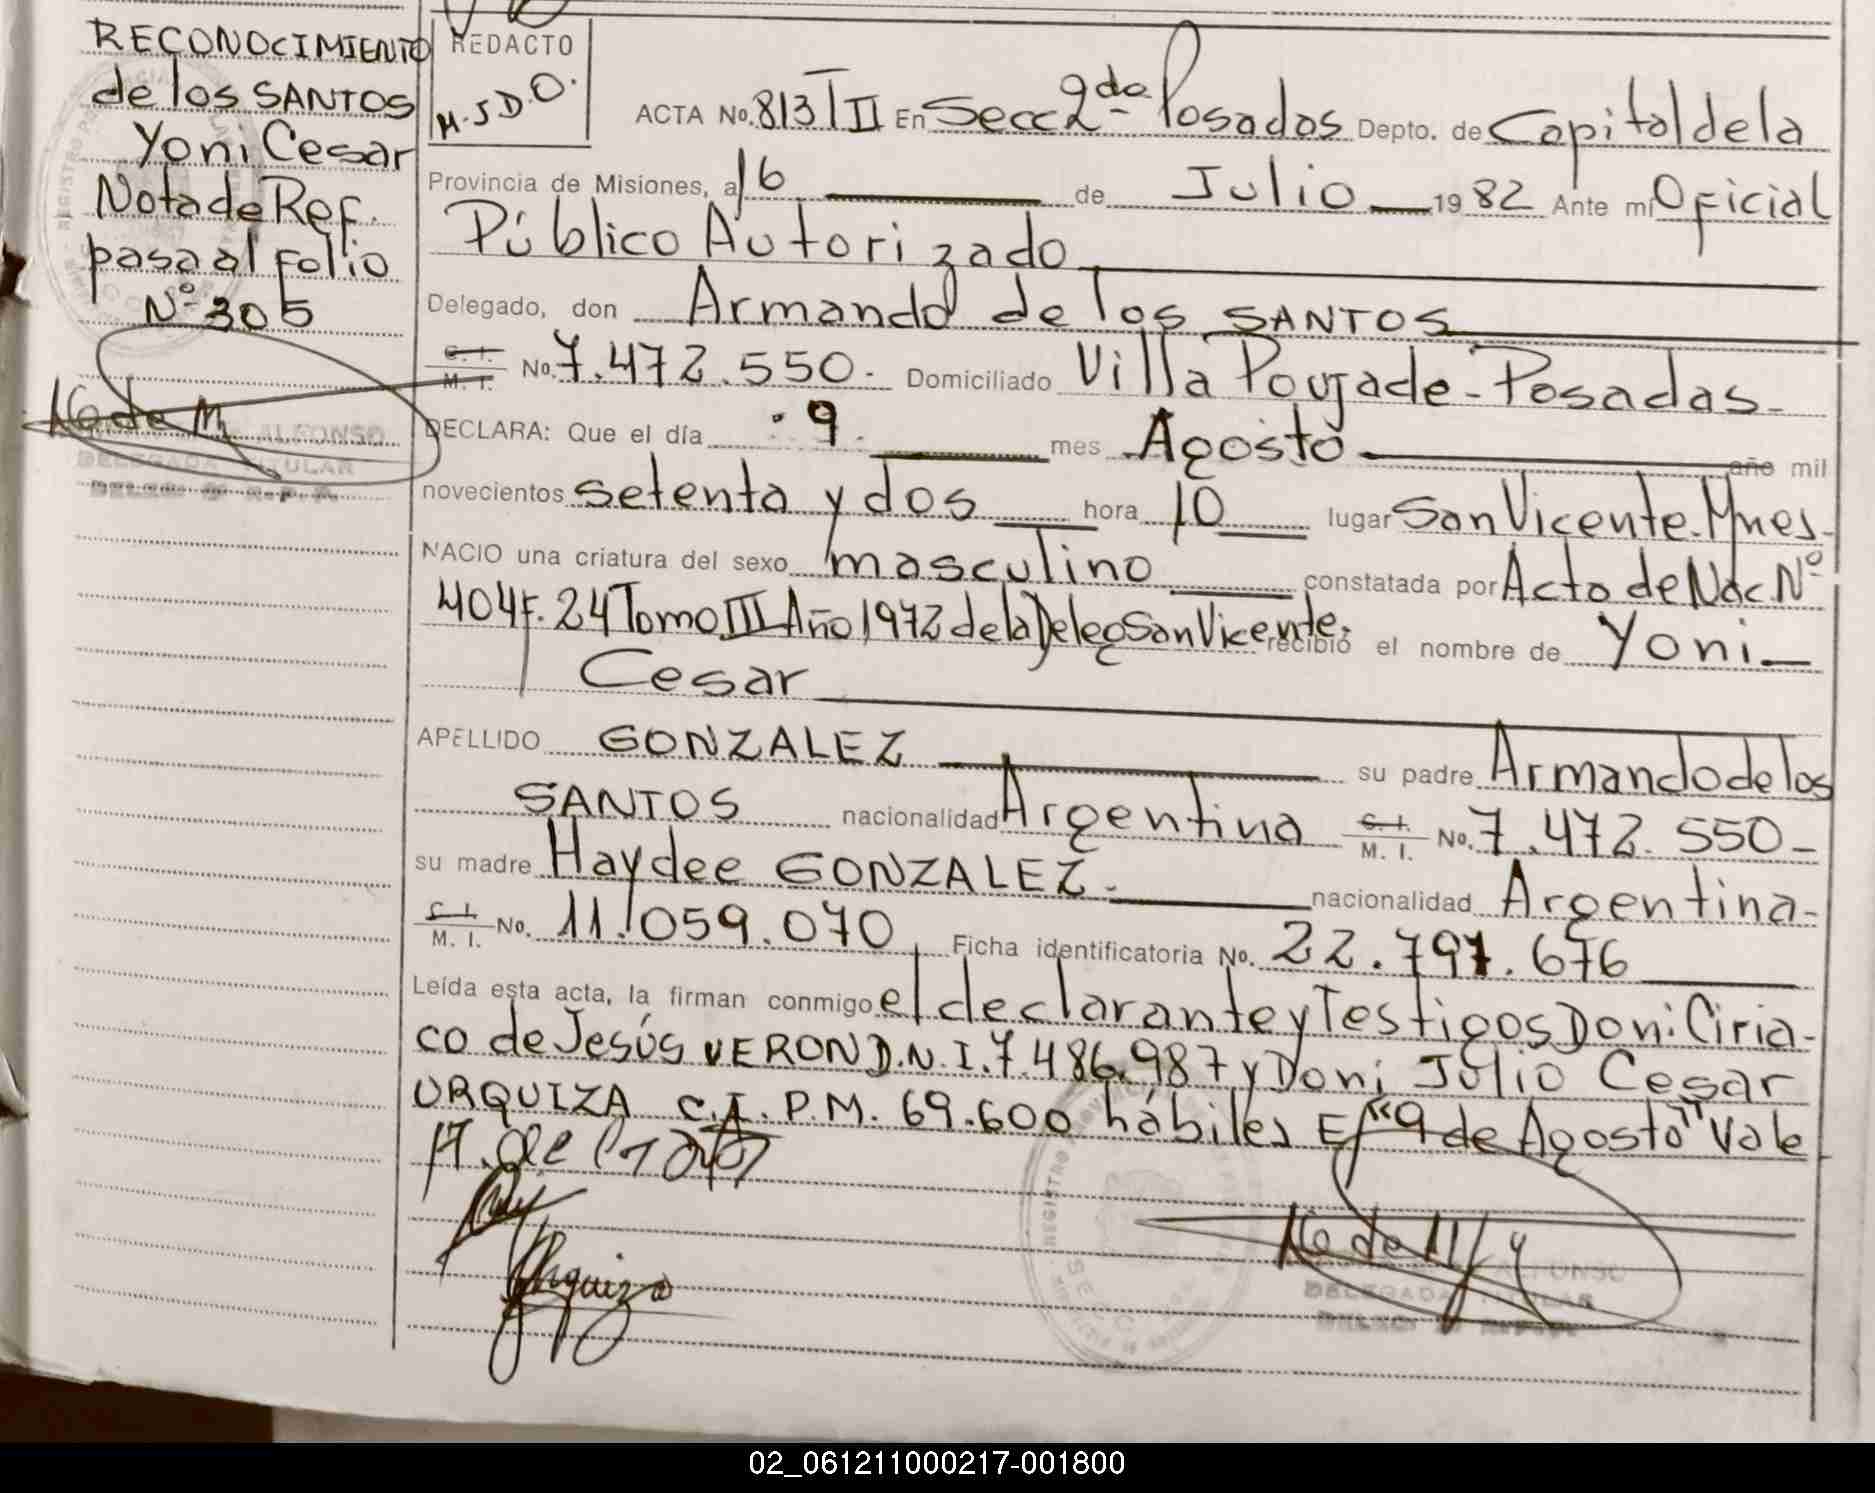 RECONOCIMIENTO
de los SANTOS
Yoni Cesar
Nota de Ref.
pasa al Folio
Nº 305
ALFONSO
DELEGADA TITULAR
REDACTO
M.S.D.O.
ACTA No. 813 T II En Secc 2da Posadas Depto. de Capital de la
Provincia de Misiones, a 16 de Julio 1982 Ante mi Oficial
Público Autorizado
Delegado, don Armando de los SANTOS
C. I. M. I. No. 7.472.550. Domiciliado Villa Poujade - Posadas -
DECLARA: Que el día 9 mes Agosto año mil
novecientos setenta y dos hora 10 lugar San Vicente. Mnes.
NACIO una criatura del sexo masculino constatada por Acta de Nac Nº
404 F. 24 Tomo III Año 1972 de la Deleg San Vicente. recibió el nombre de Yoni
Cesar
APELLIDO GONZALEZ su padre Armando de los
SANTOS nacionalidad Argentina C. I. M. I. No. 7.472.550 -
su madre Haydee GONZALEZ. nacionalidad Argentina -
C. I. M. I. No. 11.059.070 Ficha identificatoria No. 22.791.676
Leída esta acta, la firman conmigo el declarante y Testigos Don: Ciria-
co de Jesús VERON D.N.I. 7.486.987 y Don: Julio Cesar
URQUIZA C.I. P.M. 69.600 hábiles E/ "9 de Agosto" Vale
ALFONSO
DELEGADA TITULAR
02_061211000217-001800